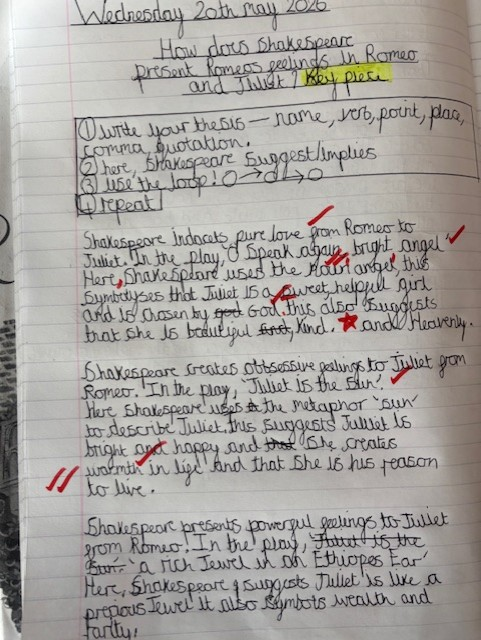 Wednesday 20th may 2026
How does Shakespeare
present Romeos feelings in Romeo
and Juliet? Key piece
① write your thesis – name, verb, point, place,
comma quotation.
② here, Shakespeare suggest/implies
③ use the loop! O→O→O
④ repeat
Shakespeare indacets pure love from Romeo to
Juliet. In the play, 'O speak again, bright angel'
Here, Shakespeare uses the noun 'angel', this
symbolyses that Juliet is a sweet, helpful girl
and is chosen by god God. this also suggests
that she is beautiful and, kind. ★ and Heavenly.
Shakespeare creates obbsessive feelings to Juliet from
Romeo. In the play, 'Juliet is the sun.'
Here Shakespeare uses the metaphor 'sun'
to describe Juliet. this suggests Juliet is
bright and happy and that she creates
warmth in life and that she is his reason
to live.
Shakespeare presents powerful feelings to Juliet
from Romeo. In the play, 'Juliet is the
sun. 'a rich Jewel in an Ethiopes Ear'
Here, Shakespeare suggests Juliet is like a
precious Jewel it also symbols wealth and